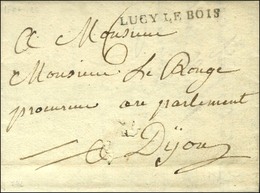 LUCY LE BOIS
A Monsieur
Monsieur Le Rouge
procureur au parlement
A Dijon